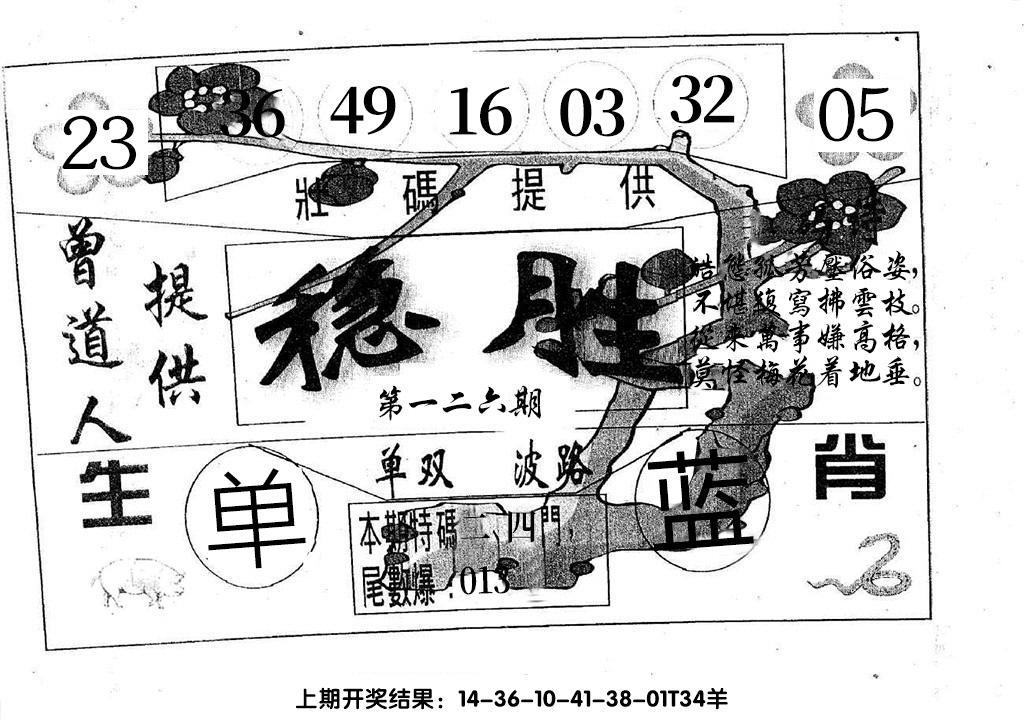 23 36 49 16 03 32 05
壯碼提供
曾道人
提供
稳胜
第一二六期
皓態孤芳壓俗姿，
不堪複寫拂雲枝。
從來萬事嫌高格，
莫怪梅花着地垂。
单双 波路
生
单
蓝
肖
本期特碼二、四門，
尾數爆：013
上期开奖结果：14-36-10-41-38-01T34羊